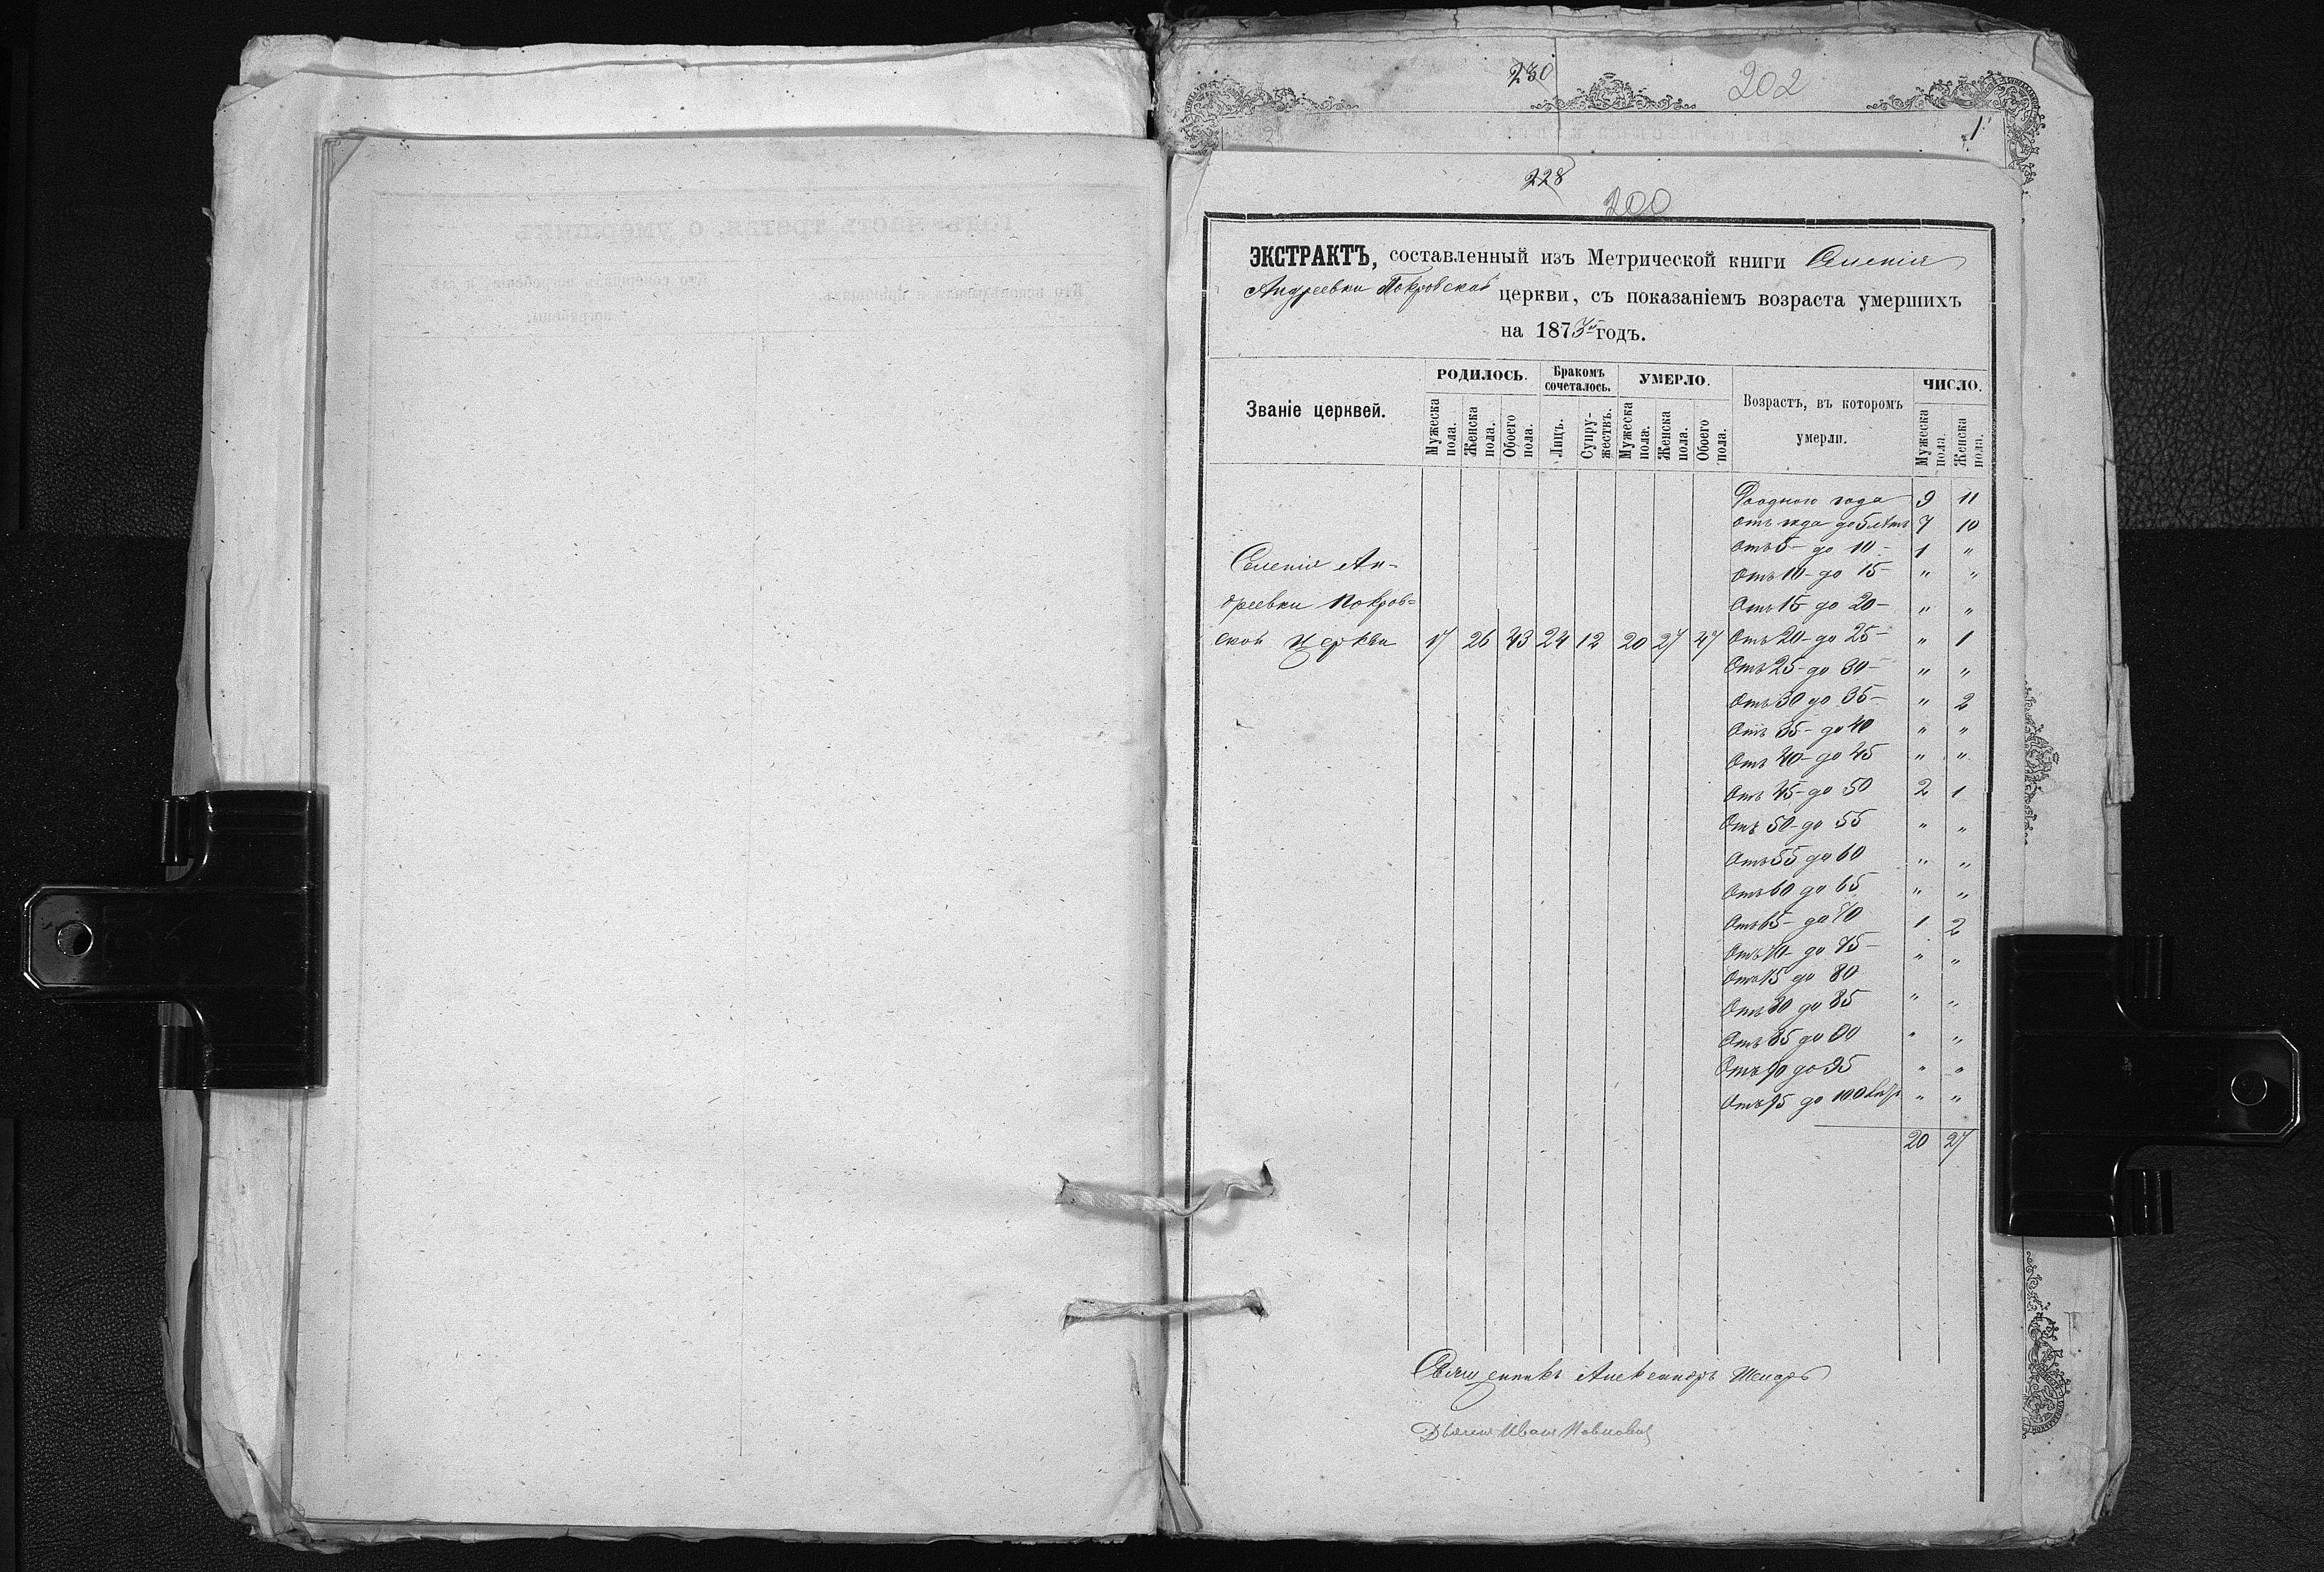 230
202
1
228
200
ЭКСТРАКТЪ, составленный изъ Метрической книги Селенія
Андреевки Покровской церкви, съ показаніемъ возраста умершихъ
на 1873й годъ.
Званіе церквей. РОДИЛОСЬ. Бракомъ сочеталось. УМЕРЛО. Возрастъ, въ которомъ умерли. ЧИСЛО.
Мужеска пола. Женска пола. Обоего пола. Лицъ. Супружествъ. Мужеска пола. Женска пола. Обоего пола. Мужеска пола. Женска пола.
До одного года 9 11
Отъ года до 5 лѣтъ 7 10
Отъ 5 - до 10 - 1 "
Отъ 10 - до 15 - " "
Отъ 15 до 20 - " "
Селенія Ан-
дреевки Покров=
ской Церкви 17 26 43 24 12 20 27 47 Отъ 20 - до 25 - " 1
Отъ 25 - до 30 - " "
Отъ 30 до 35 - " 2
Отъ 35 - до 40 " "
Отъ 40 - до 45 " "
Отъ 45 - до 50 2 1
Отъ 50 - до 55 " "
Отъ 55 до 60 " "
Отъ 60 до 65 " "
Отъ 65 - до 70 1 2
Отъ 70 - до 75 - " "
Отъ 75 до 80
Отъ 80 до 85 " "
Отъ 85 до 90 " "
Отъ 90 до 95 " "
Отъ 95 до 100 " "
20 27
Священникъ Александръ
Дьячекъ Иванъ